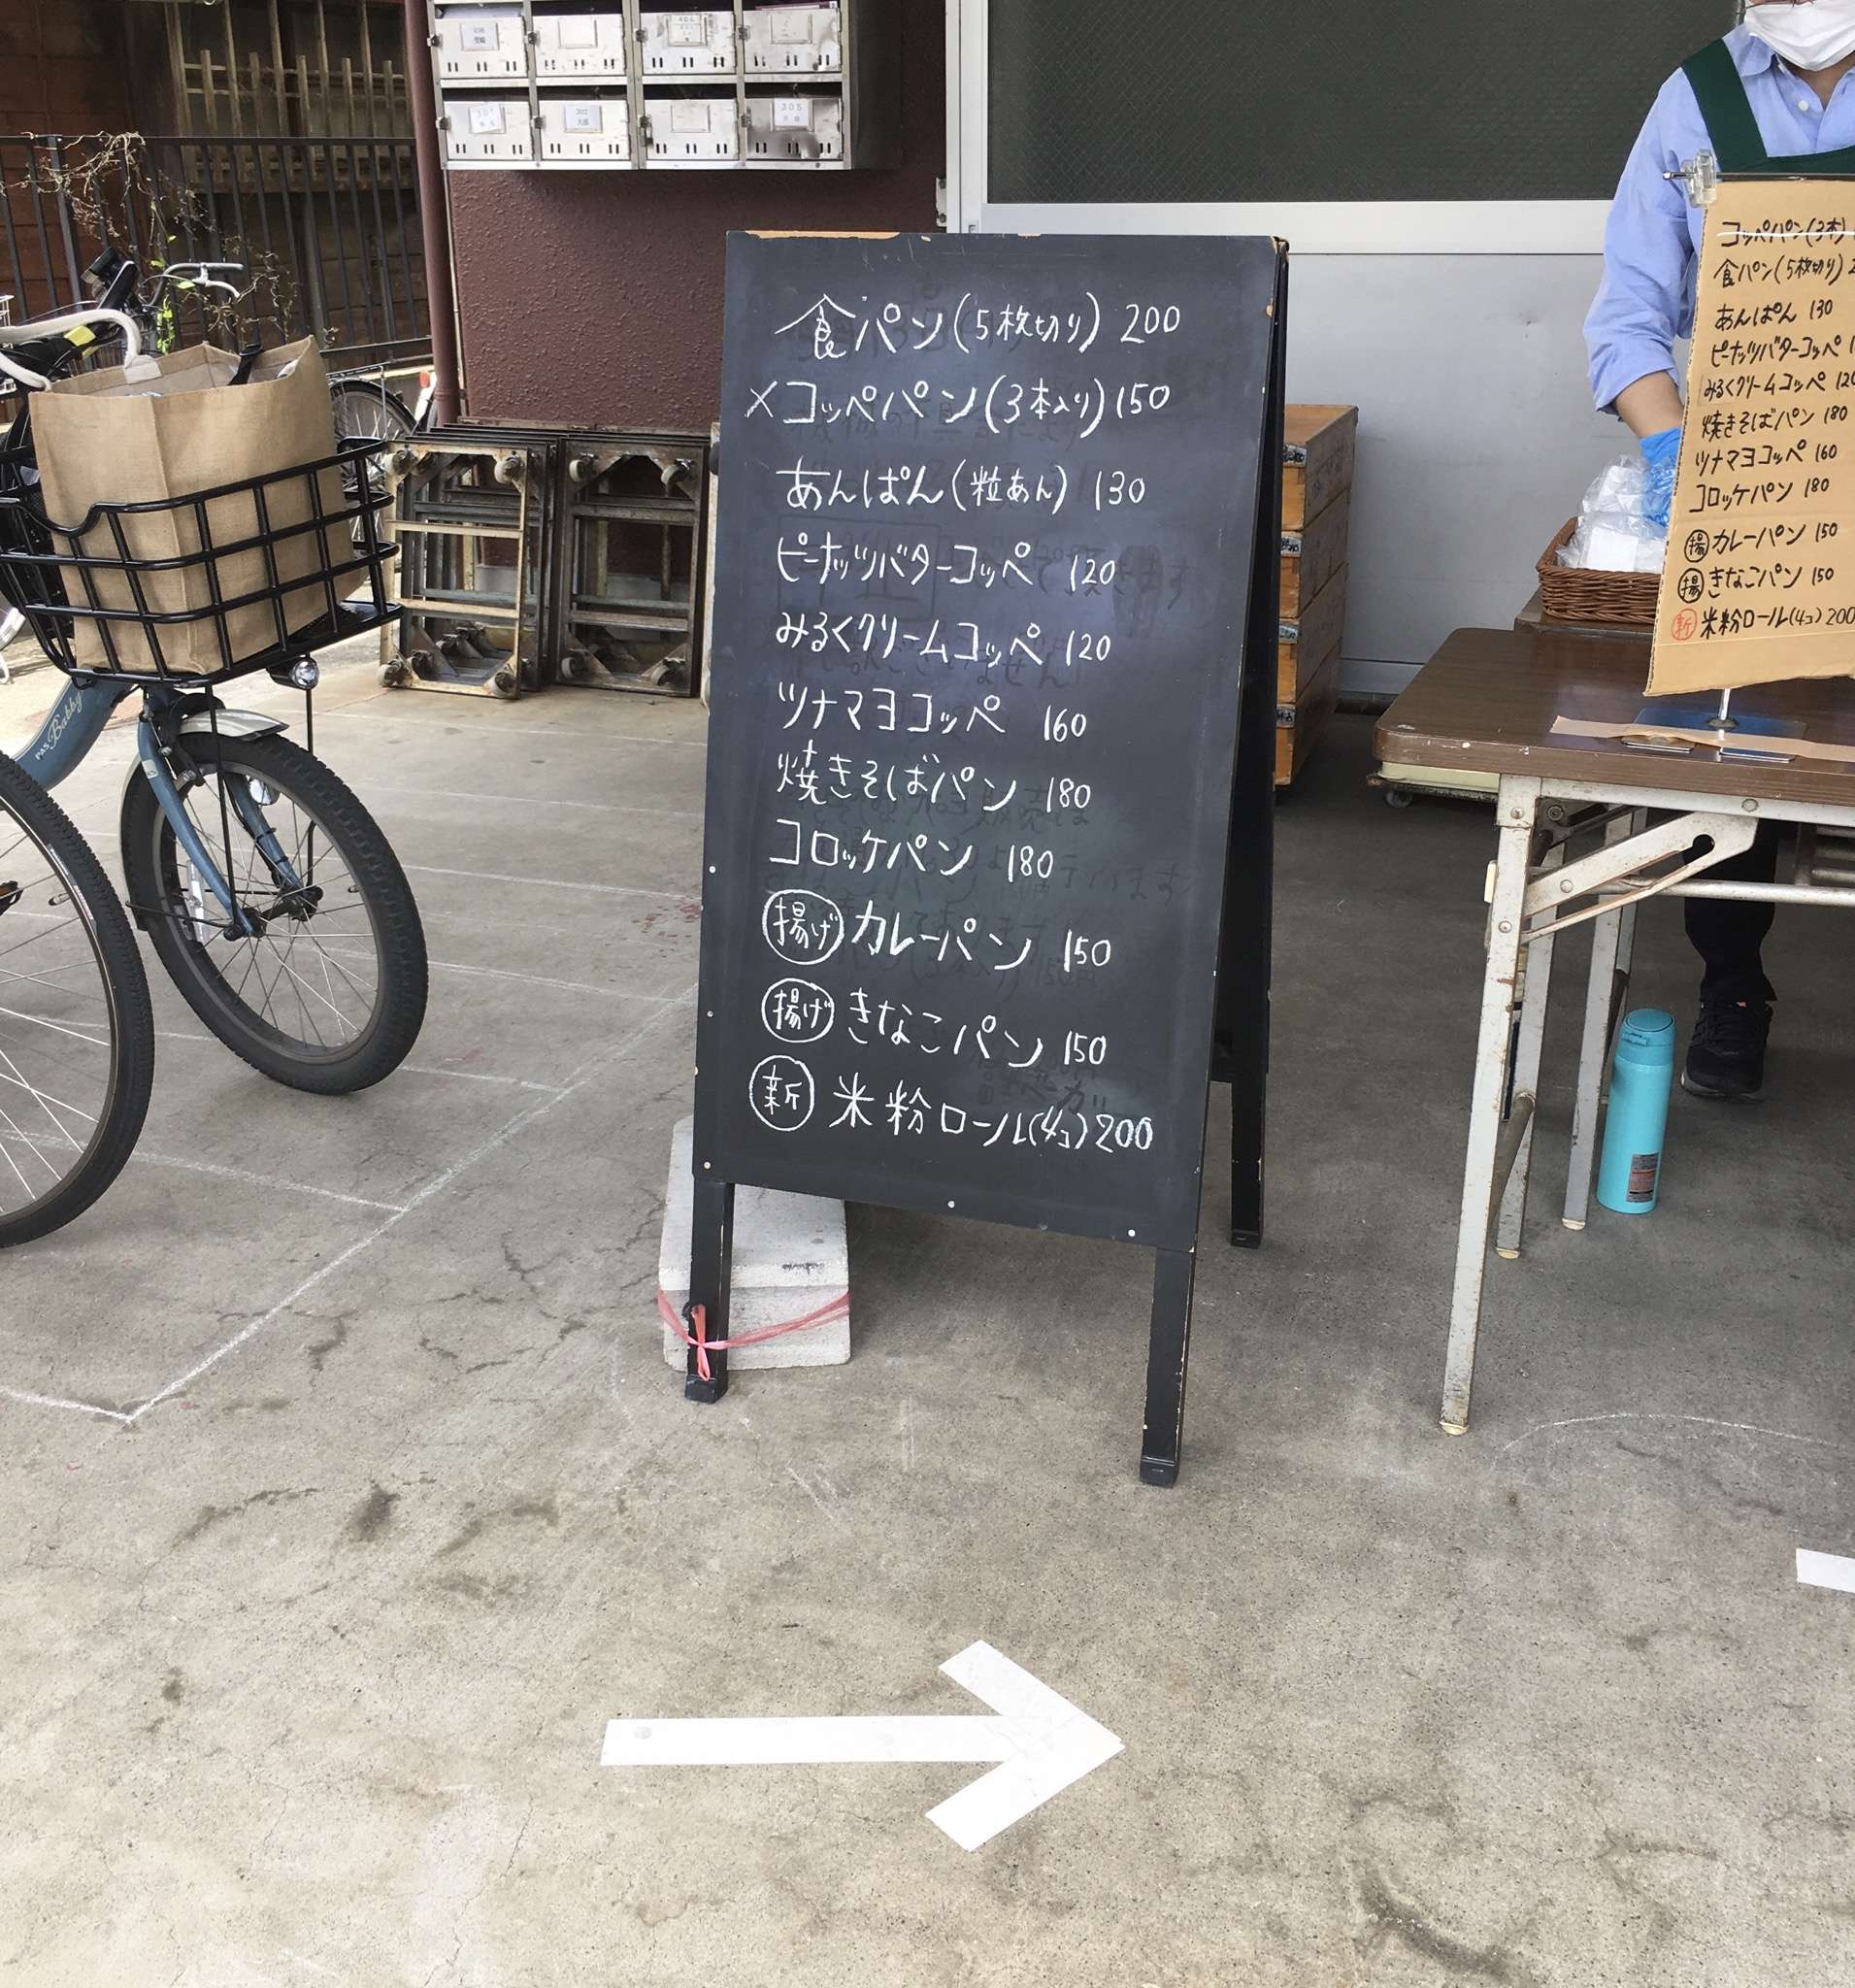 食パン(5枚切り) 200
×コッペパン(3本入り)150
あんぱん(粒あん) 130
ピーナッツバターコッペ 120
みるくクリームコッペ 120
ツナマヨコッペ 160
焼きそばパン 180
コロッケパン 180
揚げ カレーパン 150
揚げ きなこパン 150
新 米粉ロール(4コ)200
コッペパン(3本)
食パン(5枚切り) 2
あんぱん 130
ピーナッツバターコッペ 1
みるくクリームコッペ 120
焼きそばパン 180
ツナマヨコッペ 160
コロッケパン 180
揚 カレーパン 150
揚 きなこパン 150
新 米粉ロール(4コ)200
PAS Babby
301
302
305